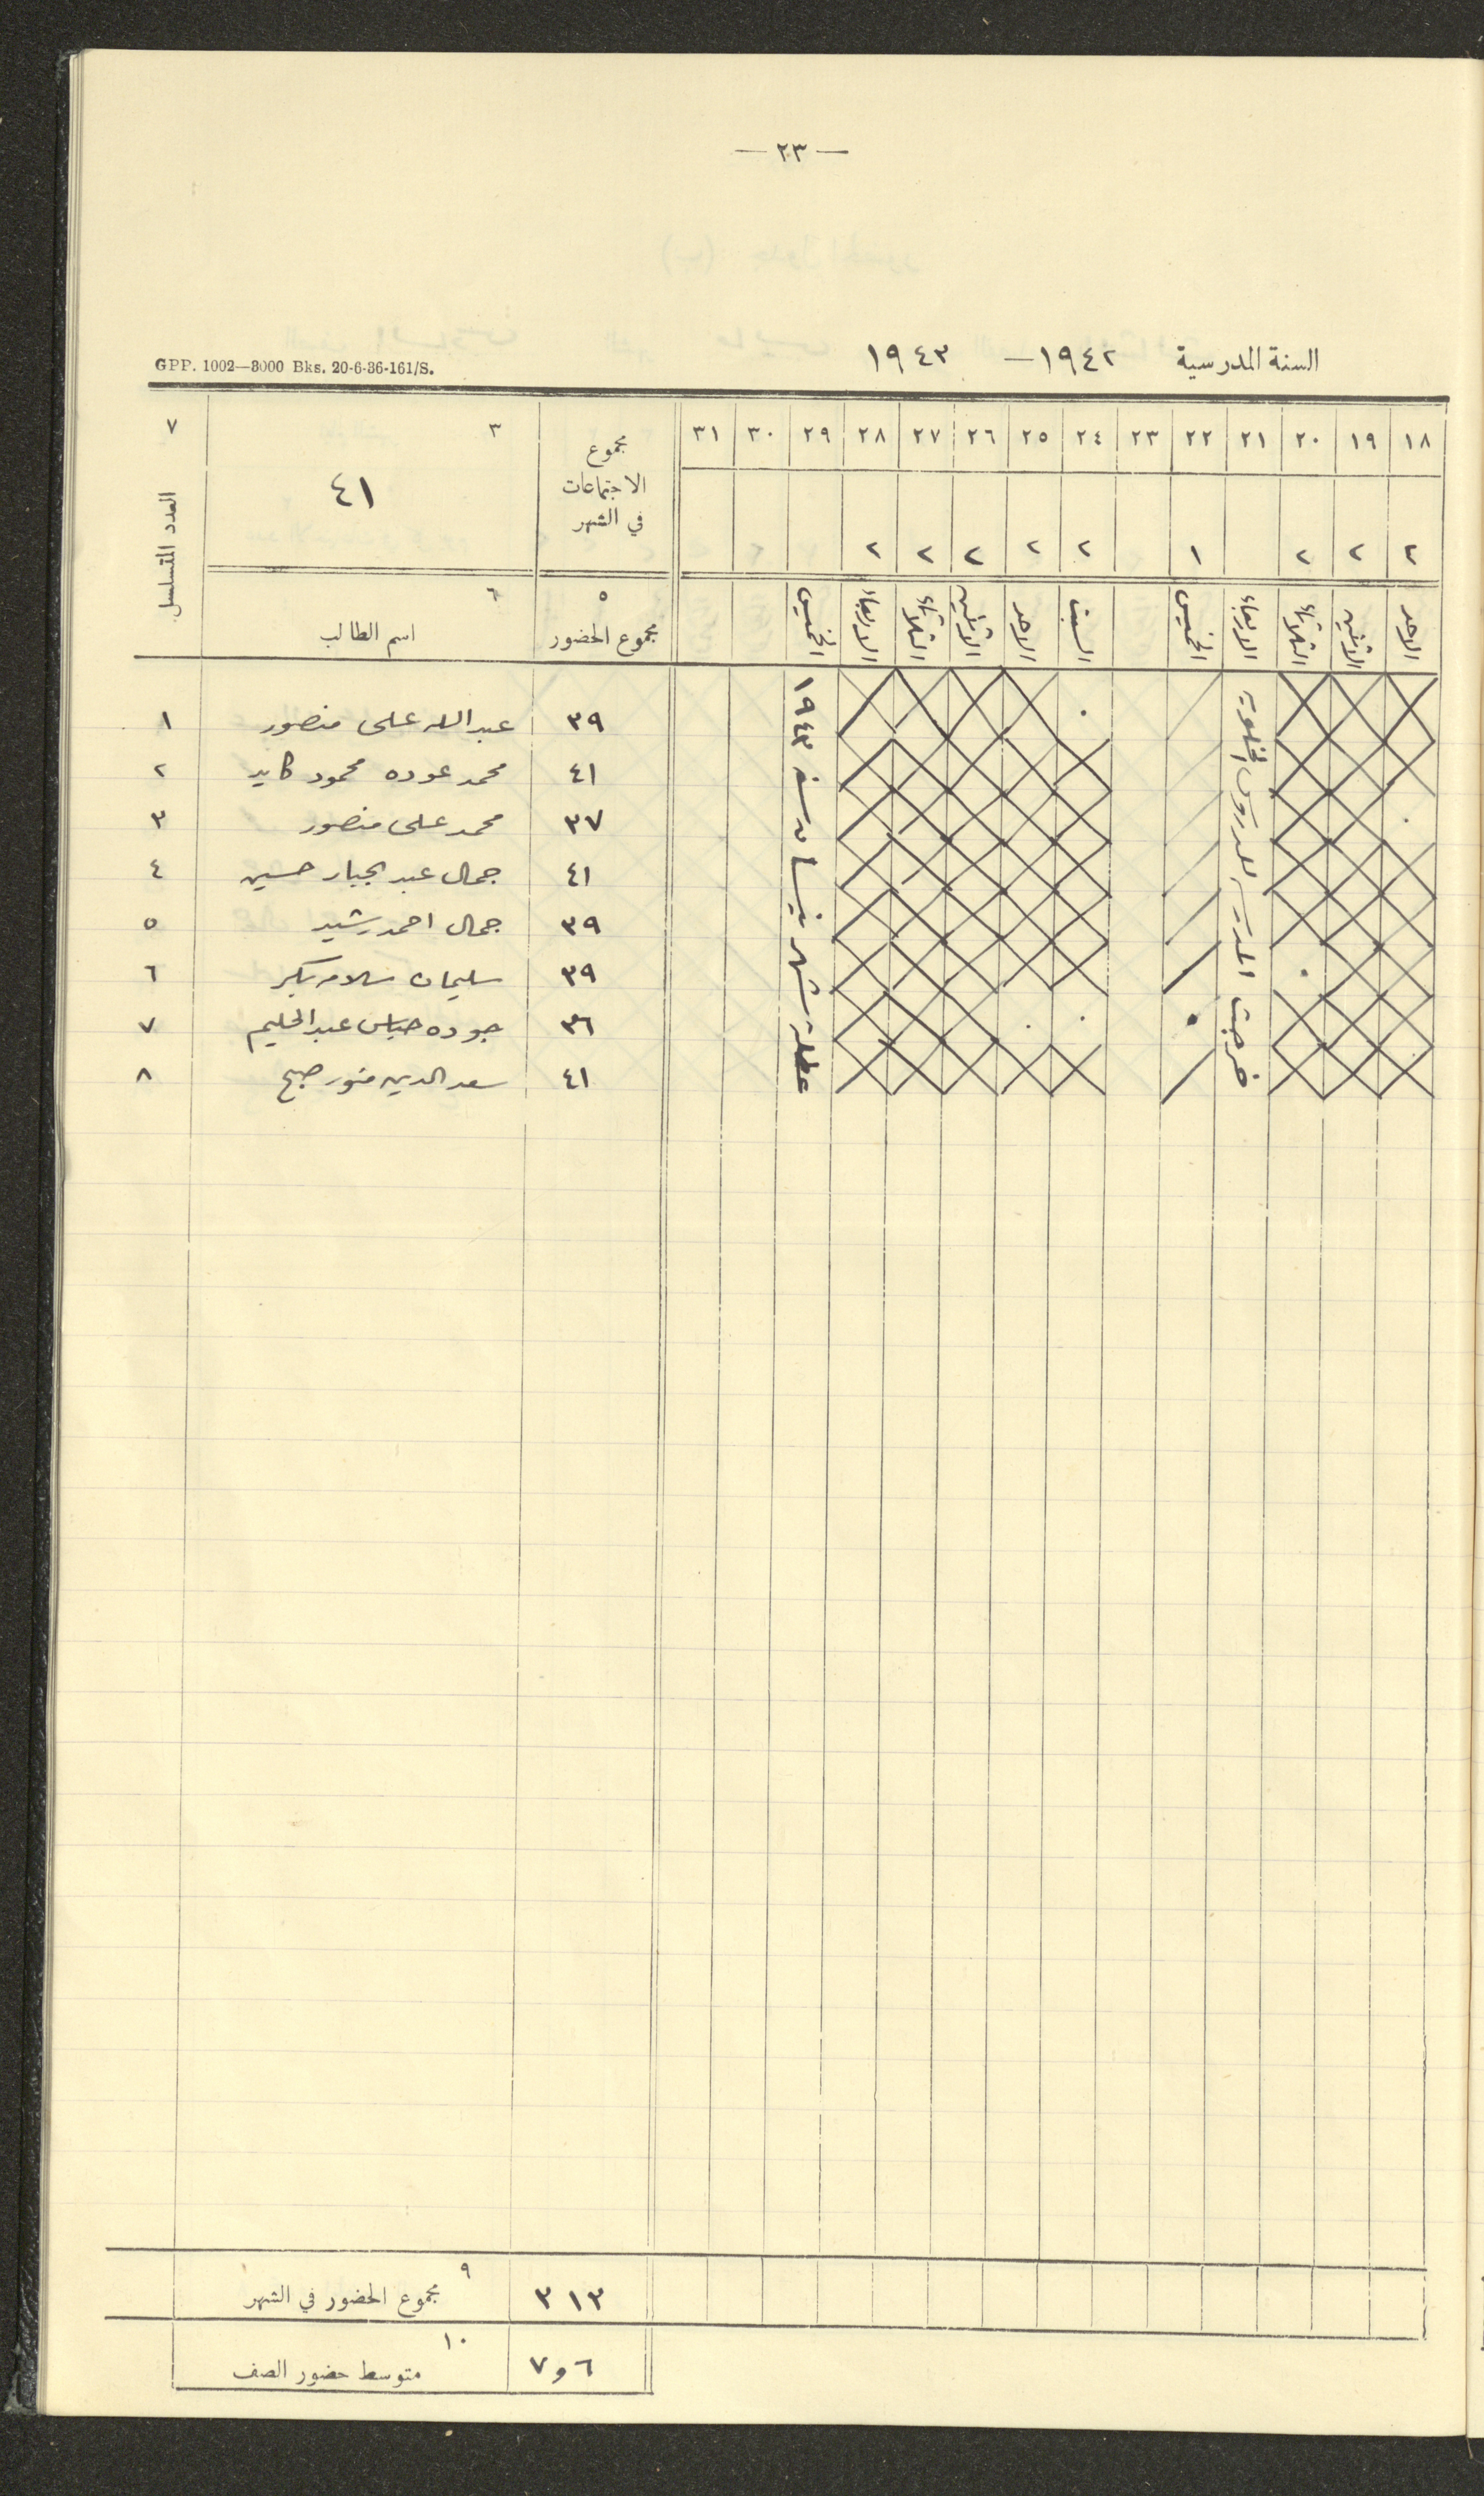 — ٢٣ —
السنة المدرسية ١٩٤٢ — ١٩٤٣
GPP. 1002—3000 Bks. 20-6-36-161/S.
١٨ ١٩ ٢٠ ٢١ ٢٢ ٢٣ ٢٤ ٢٥ ٢٦ ٢٧ ٢٨ ٢٩ ٣٠ ٣١ مجموع الاجتماعات في الشهر ٣ ٤١ ٧ العدد المتسلسل
٢ ٢ ٢ ١ ٢ ٢ ٢ ٢ ٢
الاحد الاثنين الثلاثاء الاربعاء الخميس السبت الاحد الاثنين الثلاثاء الاربعاء الخميس ٥ مجموع الحضور ٦ اسم الطالب
٣٩ عبد الله علي منصور ١
٤١ محمد عوده محمود كايد ٢
٣٧ محمد علي منصور ٣
٤١ جمال عبد الجبار حسين ٤
٣٩ جمال احمد رشيد ٥
٣٩ سليمان سلامه بكر ٦
٣٦ جوده عباس عبد الحليم ٧
٤١ سعد الدين منور صبح ٨
خرجت المدرسة للدروس الخلويه
عطلة شهر نيسان سنة ١٩٤٣
٣١٣ ٩ مجموع الحضور في الشهر
٧و٦ ١٠ متوسط حضور الصف